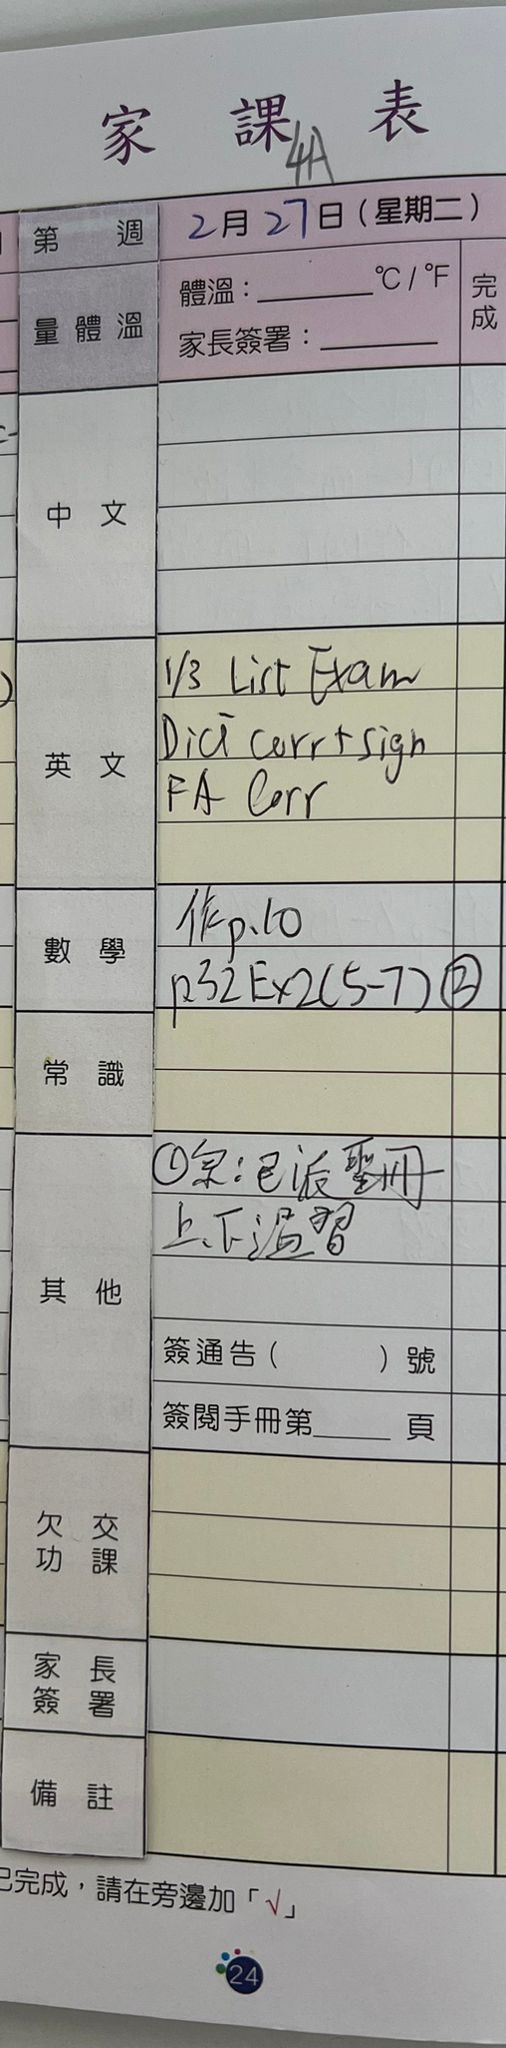 家課表
4A
第 週
2月27日(星期二)
量體溫
體溫：______℃/℉
完成
家長簽署：______
中文
英文
1/3 List Exam
Dict corr + sign
FA Corr
數學
作p.10
p32 Ex2(5-7)
常識
其他
①宗:已派聖冊
上、下溫習
簽通告( )號
簽閱手冊第____頁
欠交功課
家長簽署
備註
已完成，請在旁邊加「√」
24